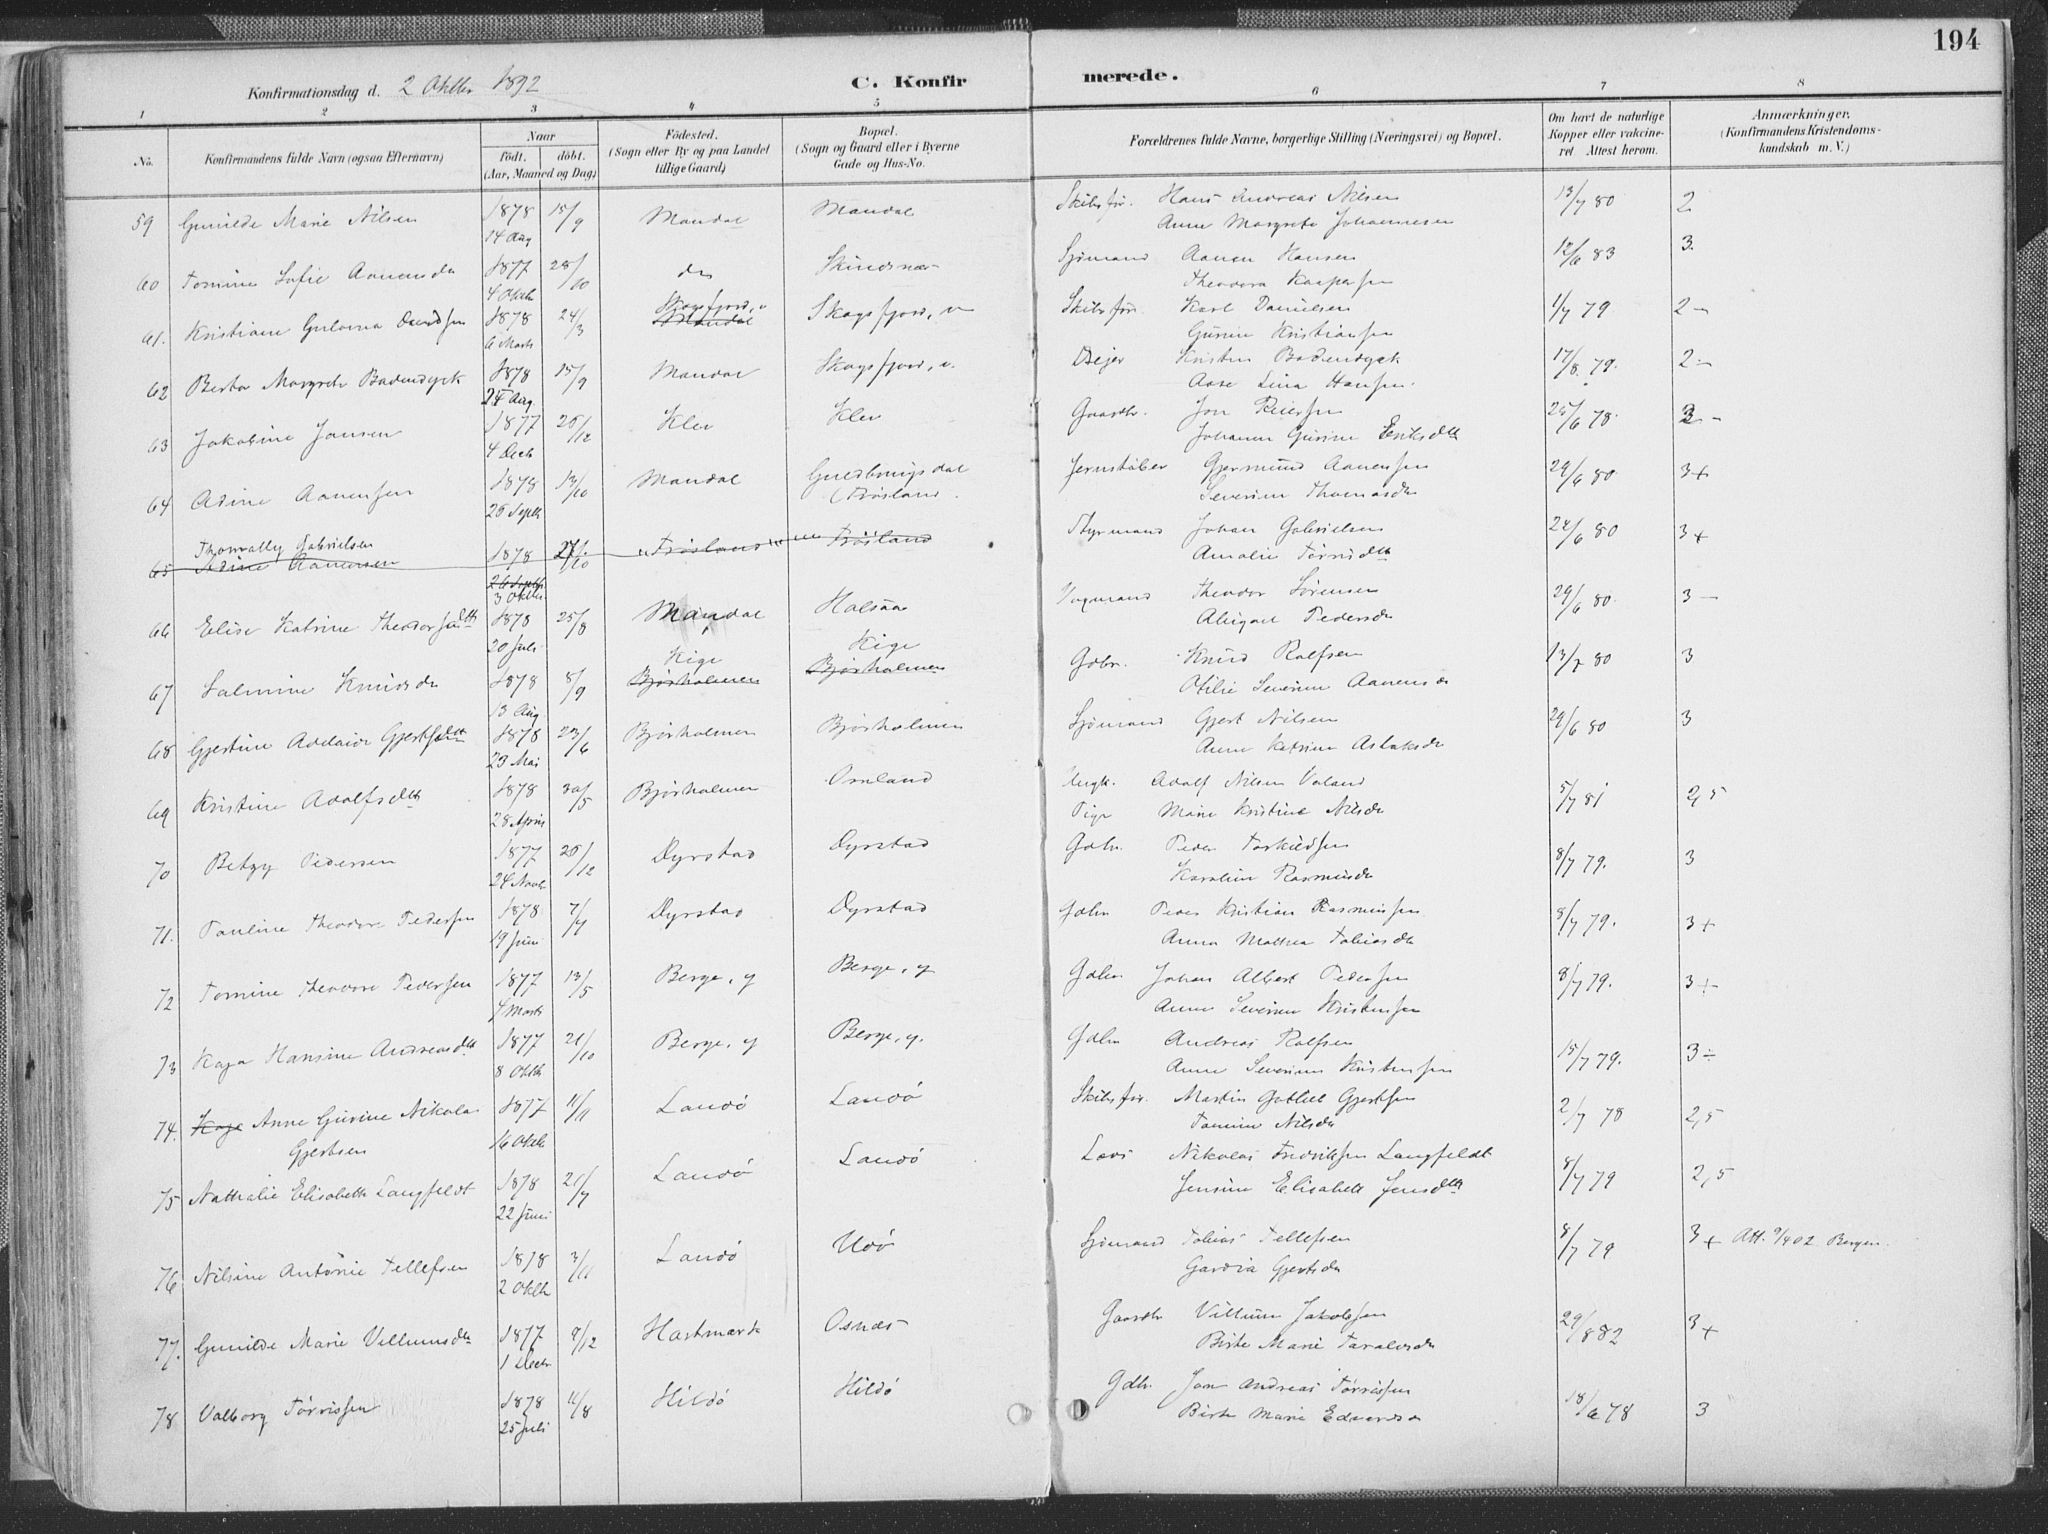 194
Konfirmationsdag d. 2 Oktbr 1892 C. Konfirmerede.
1 2 3 4 5 6 7 8
No. Konfirmandens fulde Navn (ogsaa Efternavn) Naar födt. döbt. (Aar, Maaned og Dag) Födested. (Sogn eller By og paa Landet tillige Gaard) Bopæl. (Sogn og Gaard eller i Byerne Gade og Hus-No. Forældrenes fulde Navne, borgerlige Stilling (Næringsvei) og Bopæl. Om havt de naturlige Kopper eller vakcineret. Attest herom. Anmærkninger. (Konfirmandens Kristendomskundskab m. V.)
59 Gunilde Marie Nilsen 1878 14 Aug 15/9 Mandal Mandal Skibsfør. Hans Andreas Nilsen 13/7 80 2
Anne Margrete Johannesen
60 Tomine Sofie Aanensdtr 1877 4 Oktb 28/10 do Skindsnæs Sjømand Aanen Hansen 12/6 83 3.
Theodora Kaspersen
61. Kristiane Gulovna Davidsen 1878 6 Marts 24/3 Skogsfjord, v Mandal Skogsfjord, v Skibsfør Karl Danielsen 1/7 79 2-
Gurine Kristiansen
62 Berta Margrete Badendyck 1878 25 Aug 15/9 Mandal Skogsfjord, v. Drejer Kristen Badendyck 17/8. 79. 2-
Aase Lina Hansen.
63 Jakobine Jonsen 1877 4 Decb 26/12 Klev Klev Gaardbr. Jon Reiersen 25/6 78. 2-
Johanne Gurine Eriksdtt
64 Adine Aanensen 1878 26 Septb 13/10 Mandal Guldbringsdal (Frøsland. Jernstøber Gjermund Aanensen 29/6 80 3+
Severine Thomasdtr
65 Thorvally Gabrielsen Adine Aanensen 1878 26 Septb 3 Oktbr 27/10 Frøsland Frøsland Styrmand Johan Gabrielsen 24/6 80 3+
Amalie Tørrisdtt
66 Elise Katrine Theodorsendtt 1878 20 Juli 25/8 Mandal Halsaa Theodor Sørensen 29/6 80. 3-
Abigael Pedersdtr
67 Salmine Knudsdtr 1878 13 Aug 8/9 Kige Bjørholmen Kige Bjørholmen Gdbr. Knud Rolfsen 13/7 80 3
Otilie Severine Aanensdtr
68 Gjertine Adelaide Gjertsdtt 1878 23 Mai 23/6 Bjørholmen Bjørholmen Sjømand Gjert Nilsen 29/6 80 3
Anne Katrine Aslaksdtr
69 Kristine Adolfsdtt 1878 28 April 30/5 Bjørholmen Omland Ungk. Adolf Nilsen Valand 5/7 81 2,5
Pige Marie Kristine Nilsdtr
70 Betzy Pedersen 1877 24 Novbr 26/12 Dyrstad Dyrstad Gdbr. Peder Torkildsen 8/7 79. 3
Karoline Rasmusdtr
71. Pauline Theodore Pedersen 1878 19 Juni 7/7 Dyrstad Dyrstad Gdbr Peder Kristian Rasmussen 8/7 79. 3+
Anna Mathea Tobiasdtr
72 Tomine Theodore Pedersen 1877 4 Marts 13/5 Berge, y Berge, y Gdbr Johan Albert Pedersen 8/7 79. 3+
Anne Severine Kristensen
73 Kaja Hansine Andreasdtt 1877 8 Oktb 21/10 Berge, y Berge, y. Gdbr Andreas Rolfsen 15/7 79. 3÷
Anne Severine Kristensen
74. Kaje Anne Gurine Nikolai 1877 16 Oktb 11/11 Landø Landø Skibsfør. Martin Gotlieb Gjertsen 2/7 78 2,5
Gjertsen Tomine Nilsdtr
75 Nathalie Elisabeth Langfeldt 1878 22 Juni 21/7 Landø Landø Lods Nikolai Fredriksen Langfeldt 8/7 79 2,5
Jensine Elisabeth Jensdtt
76 Nilsine Antonie Tellefsen 1878 2 Oktb 3/11 Landø Udø Sjømand Tobias Tellefsen 8/7 79 3+ Att. 9/4 02 Bergen.
Gardia Gjertsdtr
77. Gunilde Marie Villumsdtr 1877 1 Decbr 9/12 Hastmark Osnæs Gaardbr Villum Jakobsen 29/8 82 3+
Birte Marie Taraldsdtr
78 Valborg Tørrissen 1878 25 Juli 11/8 Hildø Hildø Gdbr. Jan Andreas Tørrissen 18/6 78 3
Birte Marie Edvardsdtr